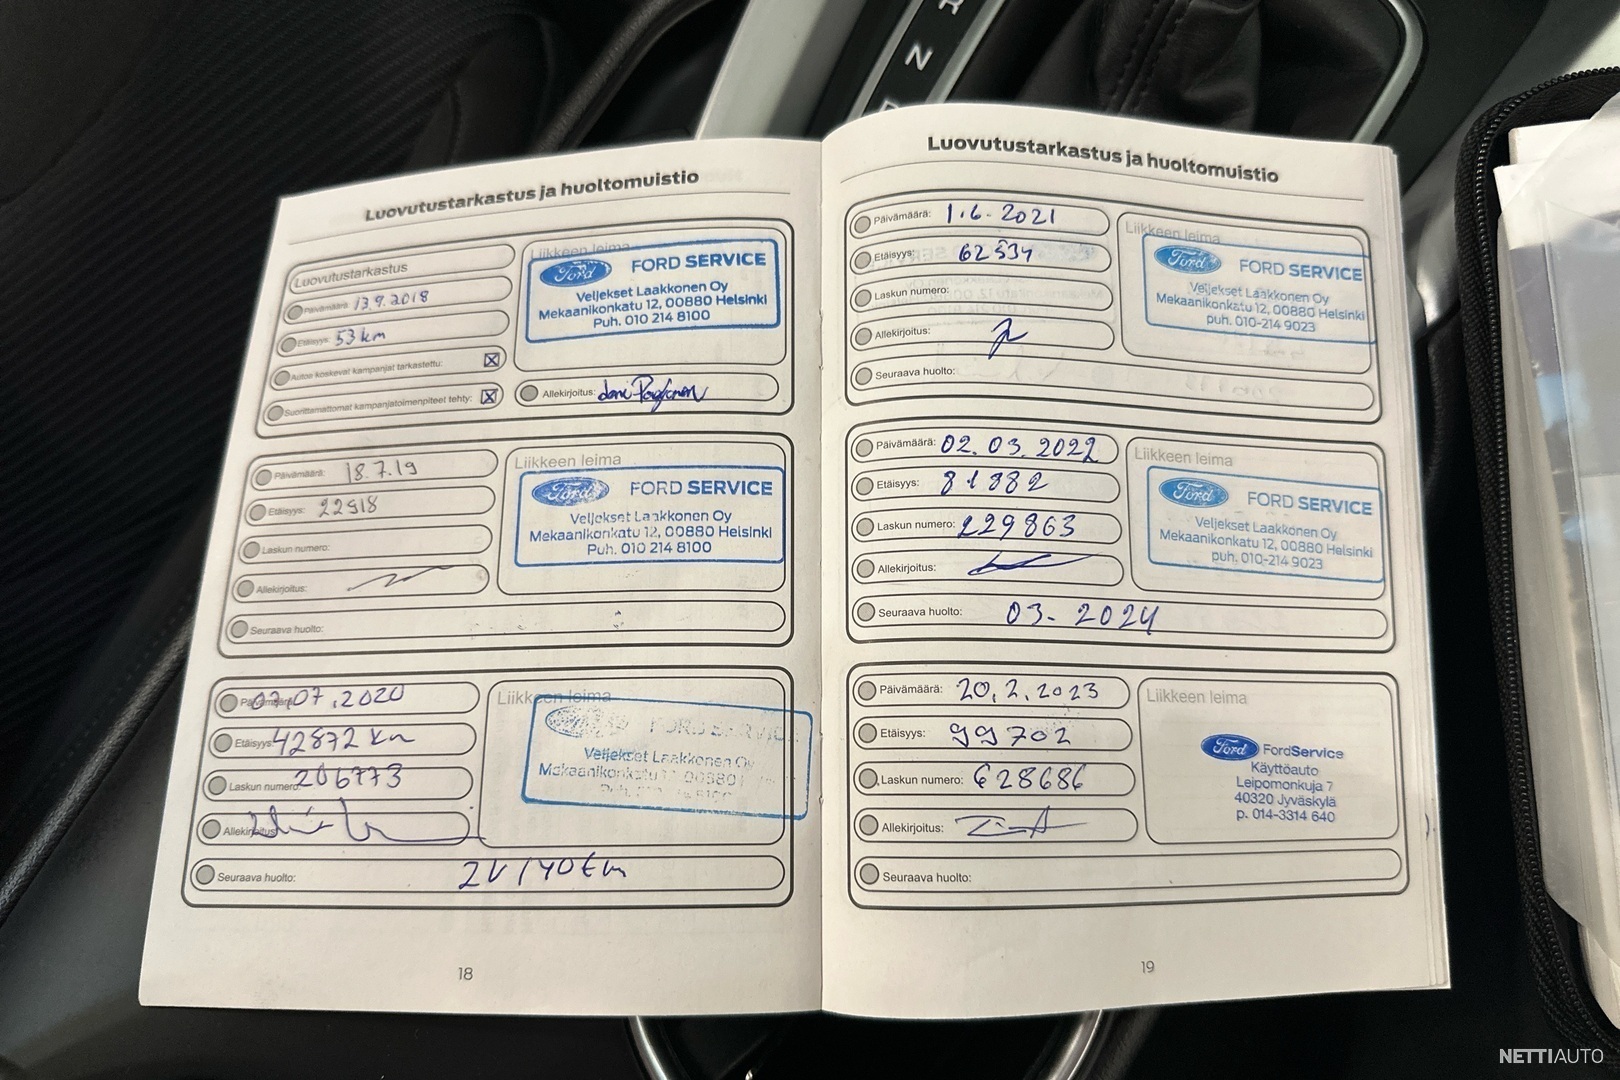 N
Luovutustarkastus ja huoltomuistio
Luovutustarkastus
Päivämäärä: 13.9.2018
Etäisyys: 53 km
Auton koskevat kampanjat tarkastettu: X
Suorittamattomat kampanjatoimenpiteet tehty: X
Liikkeen leima
Ford FORD SERVICE
Veljekset Laakkonen Oy
Mekaanikonkatu 12, 00880 Helsinki
Puh. 010 214 8100
Allekirjoitus:
Päivämäärä: 18.7.19
Etäisyys: 22918
Laskun numero:
Allekirjoitus:
Seuraava huolto:
Liikkeen leima
Ford FORD SERVICE
Veljekset Laakkonen Oy
Mekaanikonkatu 12, 00880 Helsinki
Puh. 010 214 8100
Päivämäärä: 07.07.2020
Etäisyys: 42872 km
Laskun numero: 206773
Allekirjoitus:
Seuraava huolto: 2V/40tkm
Liikkeen leima
FORD SERVICE
Veljekset Laakkonen Oy
Mekaanikonkatu
18
Luovutustarkastus ja huoltomuistio
Päivämäärä: 1.6.2021
Etäisyys: 62534
Laskun numero:
Allekirjoitus:
Seuraava huolto:
Liikkeen leima
Ford FORD SERVICE
Veljekset Laakkonen Oy
Mekaanikonkatu 12, 00880 Helsinki
puh. 010-214 9023
Päivämäärä: 02.03.2022
Etäisyys: 81882
Laskun numero: 229863
Allekirjoitus:
Seuraava huolto: 03.2024
Liikkeen leima
Ford FORD SERVICE
Veljekset Laakkonen Oy
Mekaanikonkatu 12, 00880 Helsinki
puh. 010-214 9023
Päivämäärä: 20.2.2023
Etäisyys: 99702
Laskun numero: 628686
Allekirjoitus:
Seuraava huolto:
Liikkeen leima
Ford FordService
Käyttöauto
Leipomonkuja 7
40320 Jyväskylä
p. 014-3314 640
19
NETTIAUTO